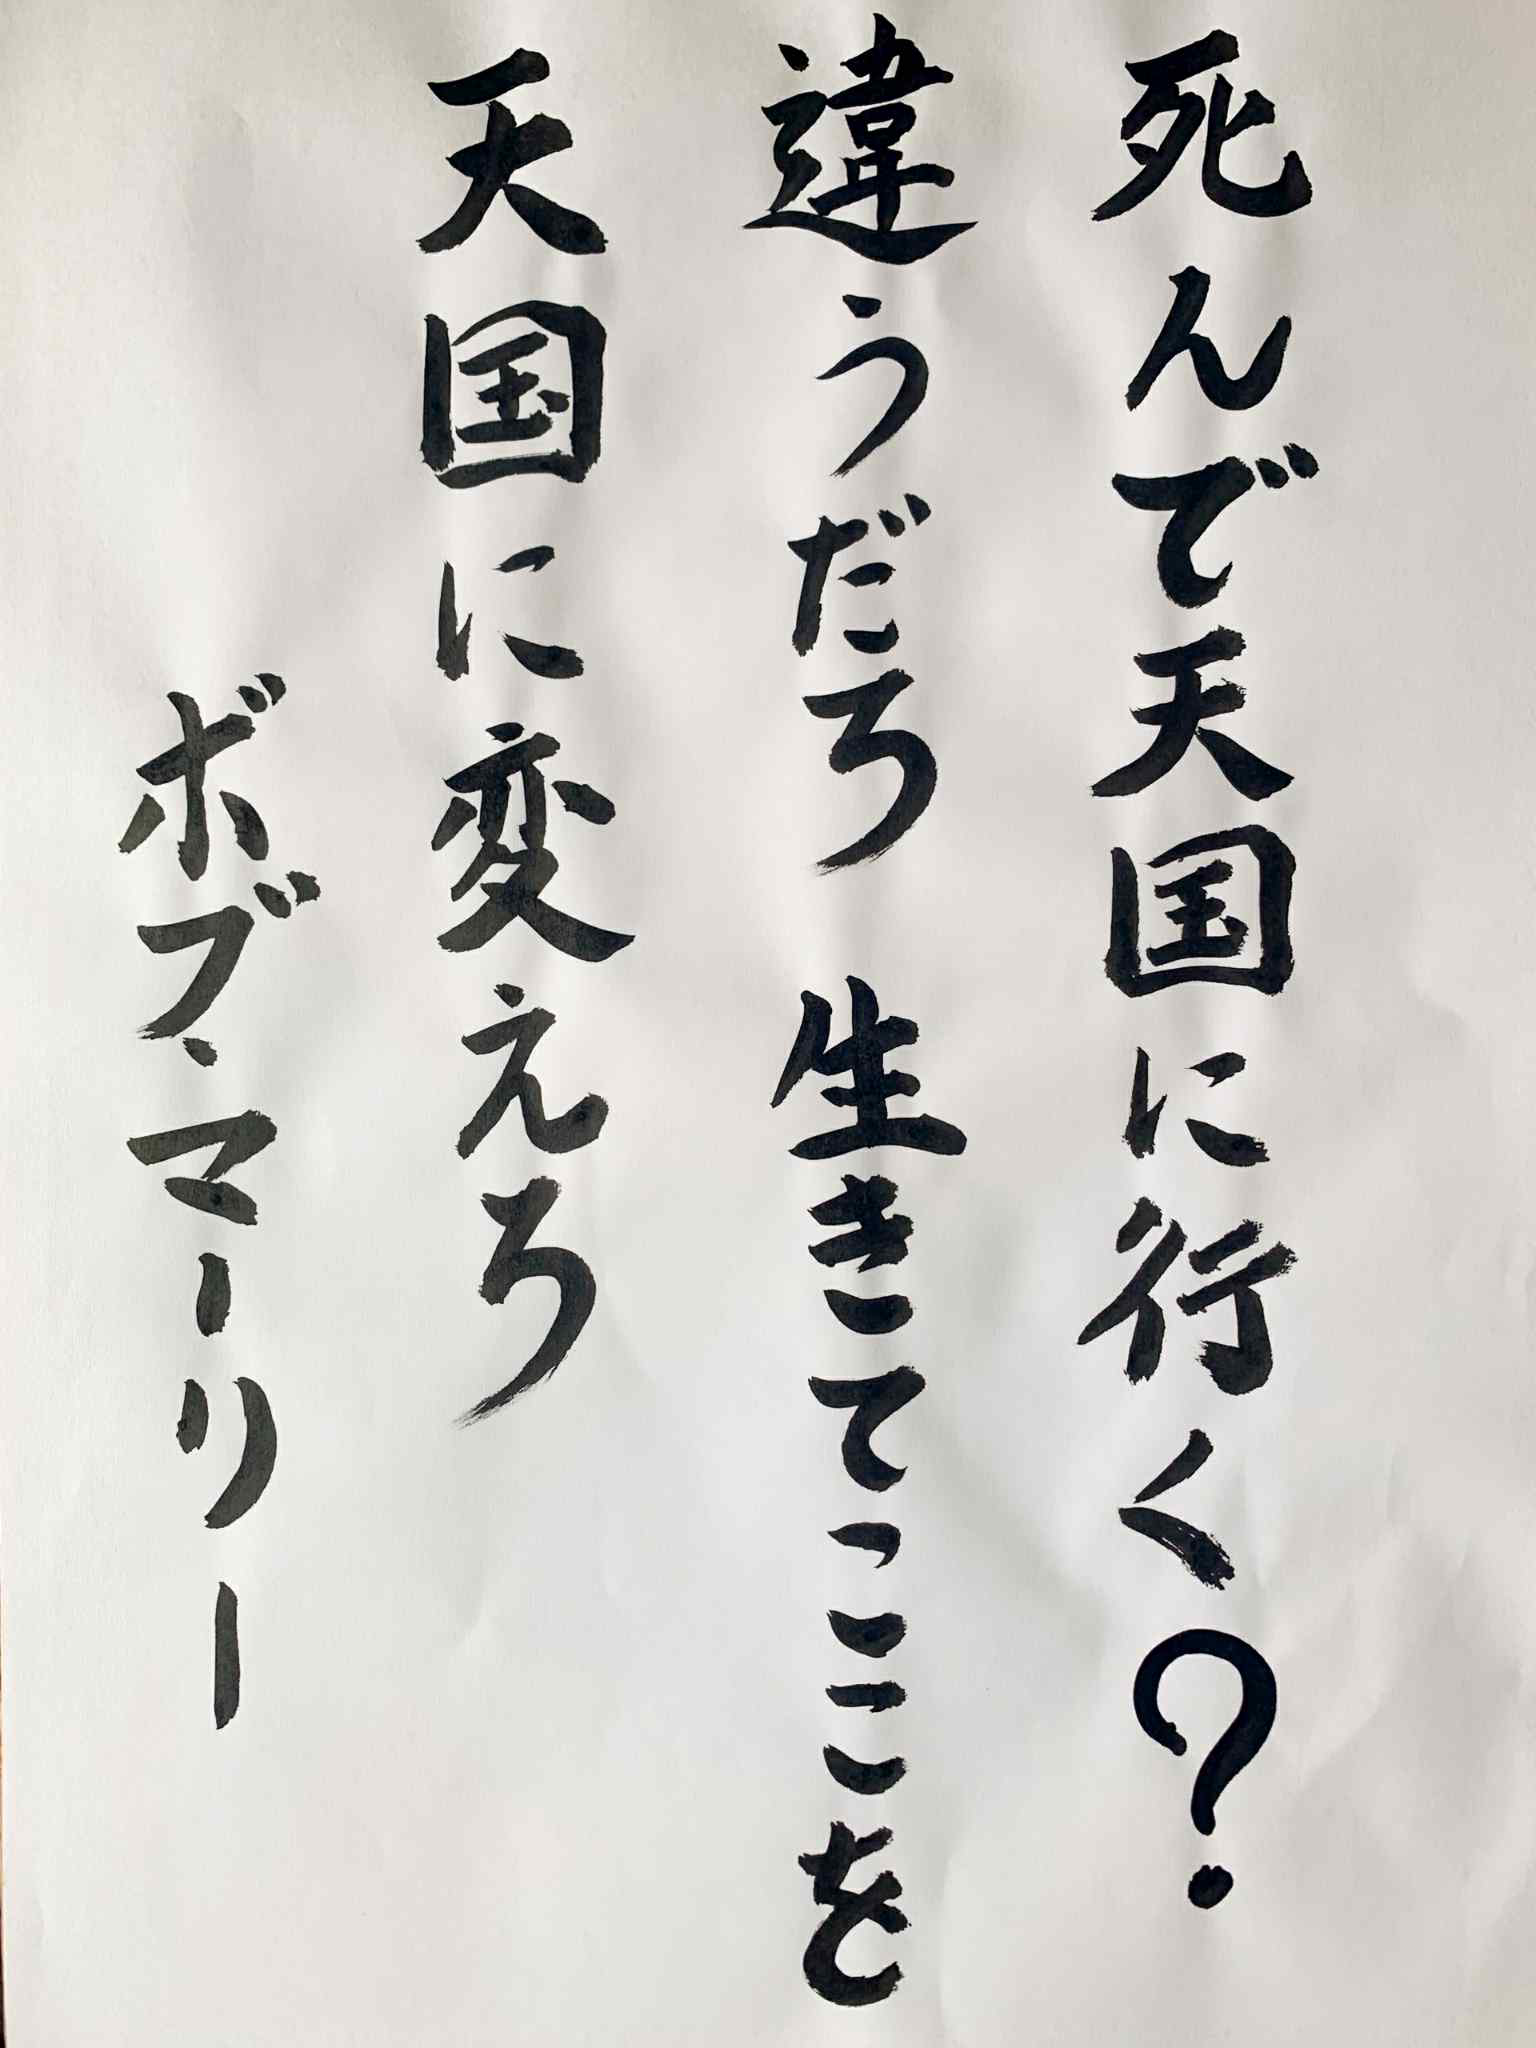 死んで天国に行く?
違うだろ 生きてここを
天国に変えろ
ボブ・マーリー